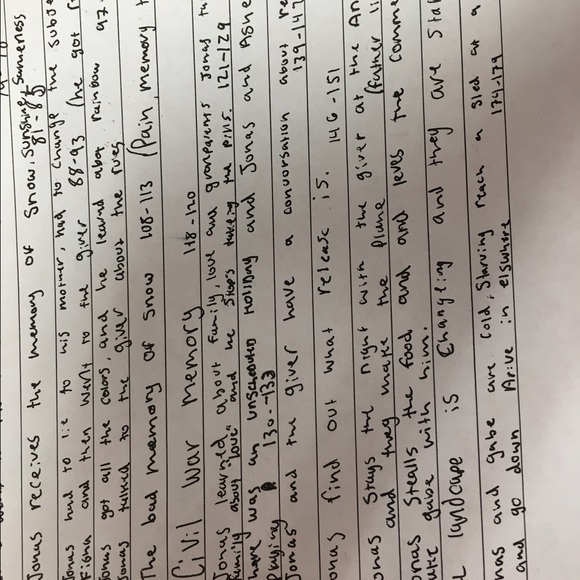 Jonas receives the memory of Snow, Sunshine, Sameness
81-85
Jonas had to lie to his mother, had to change the subje
Fiona and then went to the giver 88-93 (he got r
Jonas got all the colors, and he learnd abot rainbow 97-
Jonas talked to the giver about the
The bad memory of Snow 108-113 (Pain, memory t
Civil War Memory 118-120
Jonas learned about family, love and granparents Jonas tu
family about "love" and he stops taking the Pills. 121-129
here was an unscheduled Holiday and Jonas and Ashe
Playing 130-133
Jonas and the giver have a convorsation about re
139-142
onas find out what release is. 146-151
onas stays the night with the giver at the An
and they make the Plane (father li
onas Stealls the food and and leves the comme
ake gabe with him.
landcape is Changeing and they are Star
nas and gabe are cold, Starving reach a sled at a
and go down Arive in elswhere 174-179